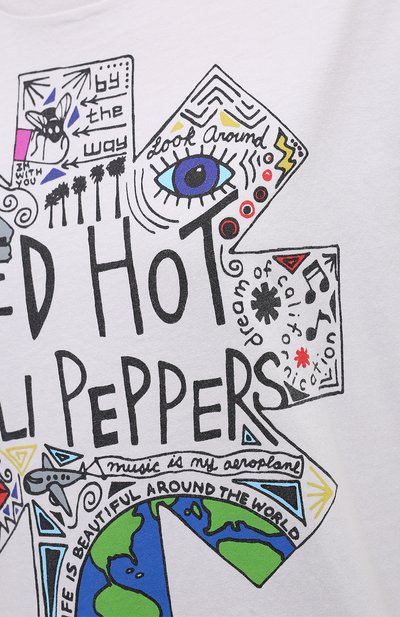 by
the
way
I'M
WITH
YOU
Look Around
ED HOT
dream of californication
LI PEPPERS
music is my aeroplane
IFE IS BEAUTIFUL AROUND THE WORLD